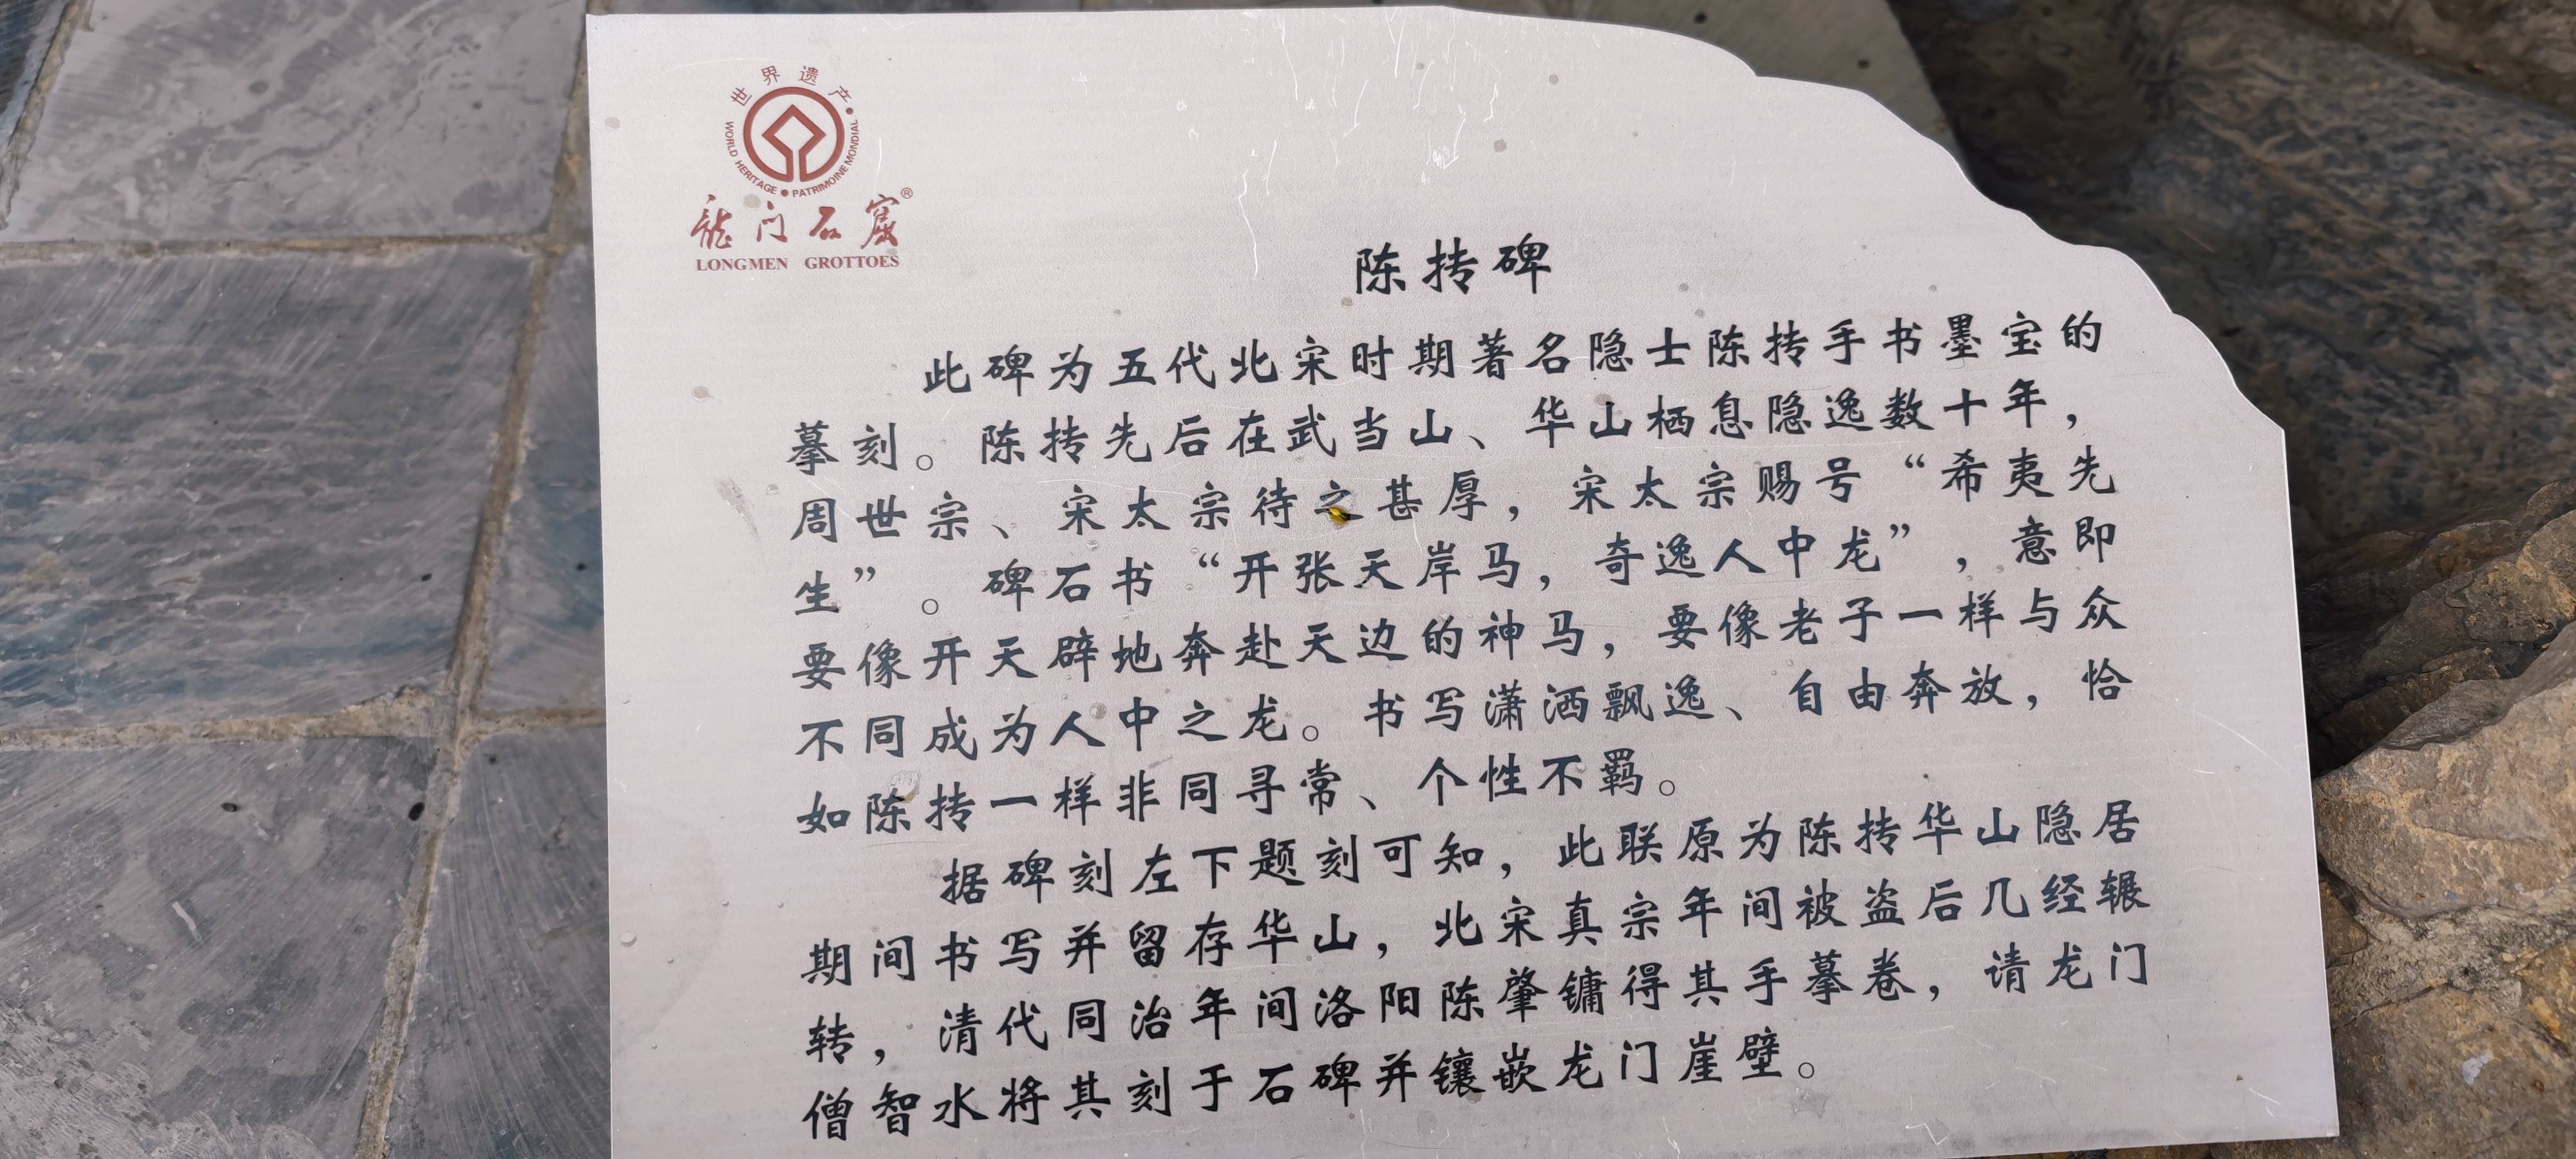 世界遗产
WORLD HERITAGE ● PATRIMOINE MONDIAL ●
龙门石窟®
LONGMEN GROTTOES
陈抟碑
此碑为五代北宋时期著名隐士陈抟手书墨宝的
摹刻。陈抟先后在武当山、华山栖息隐逸数十年，
周世宗、宋太宗待之甚厚，宋太宗赐号“希夷先
生”。碑石书“开张天岸马，奇逸人中龙”，意即
要像开天辟地奔赴天边的神马，要像老子一样与众
不同成为人中之龙。书写潇洒飘逸、自由奔放，恰
如陈抟一样非同寻常、个性不羁。
据碑刻左下题刻可知，此联原为陈抟华山隐居
期间书写并留存华山，北宋真宗年间被盗后几经辗
转，清代同治年间洛阳陈肇镛得其手摹卷，请龙门
僧智水将其刻于石碑并镶嵌龙门崖壁。